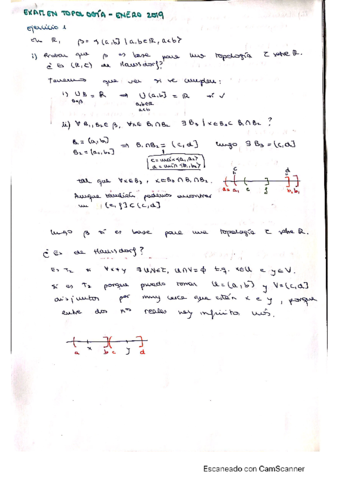 EXAMEN TOPOLOGÍA - ENERO 2019
Ejercicio 1
En ℝ, β = {(a,b] | a,b∈ℝ, a<b}
i) Probar que β es base para una topología τ sobre ℝ.
¿Es (ℝ,τ) de Hausdorff?
Tenemos que ver si se cumplen:
i) ∪ B = ℝ ⇒ ∪ (a,b] = ℝ sí ✓
B∈β a<b
a,b∈ℝ
ii) ∀ B₁,B₂ ∈ β, ∀x∈ B₁∩B₂ ∃ B₃ | x∈B₃⊂ B₁∩B₂ ?
B₁ = (a₁,b₁]
B₂ = (a₂,b₂] ⇒ B₁∩B₂ = (c,d] luego ∃ B₃ = (c,d]
c = máx{a₁,a₂}
d = mín{b₁,b₂}
tal que ∀x∈B₃, x∈B₃ ⊂ B₁∩B₂.
Aunque también podemos encontrar
un (e,f] ⊂ (c,d]
luego β sí es base para una topología τ sobre ℝ.
¿Es de Hausdorff?
Es T₂ si ∀x≠y ∃U,V∈τ, U∩V=∅ t.q. x∈U e y∈V.
Sí es T₂ porque puedo tomar U = (a,b] y V = (c,d]
disjuntos por muy cerca que estén x e y, porque
entre dos nºs reales hay infinitos más.
a x b c y d
Escaneado con CamScanner